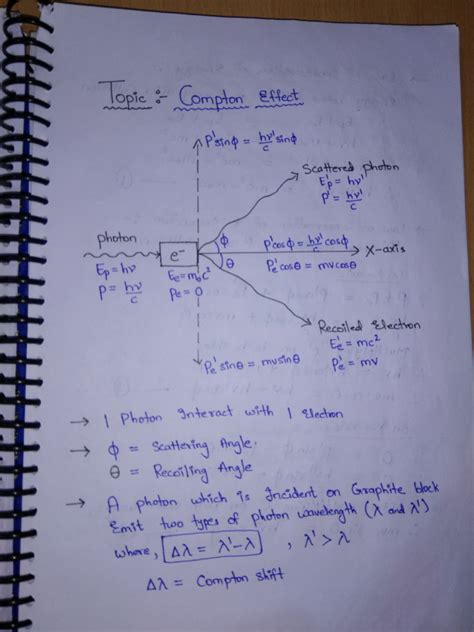 Topic :- Compton Effect
P'sinϕ = hν'/c sinϕ
Scattered photon
E'p = hν'
P' = hν'/c
photon
e⁻
ϕ
θ
P'cosϕ = hν'/c cosϕ
P'e cosθ = mvcosθ
X-axis
Ep = hν
P = hν/c
Ee = m₀c²
Pe = 0
Recoiled Electron
E'e = mc²
P'e = mv
P'e sinθ = mvsinθ
→ 1 Photon Interact with 1 Electron
→ ϕ = Scattering Angle.
θ = Recoiling Angle
→ A photon which is Incident on Graphite block
Emit two types of photon wavelength (λ and λ')
where, Δλ = λ'-λ , λ' > λ
Δλ = Compton shift